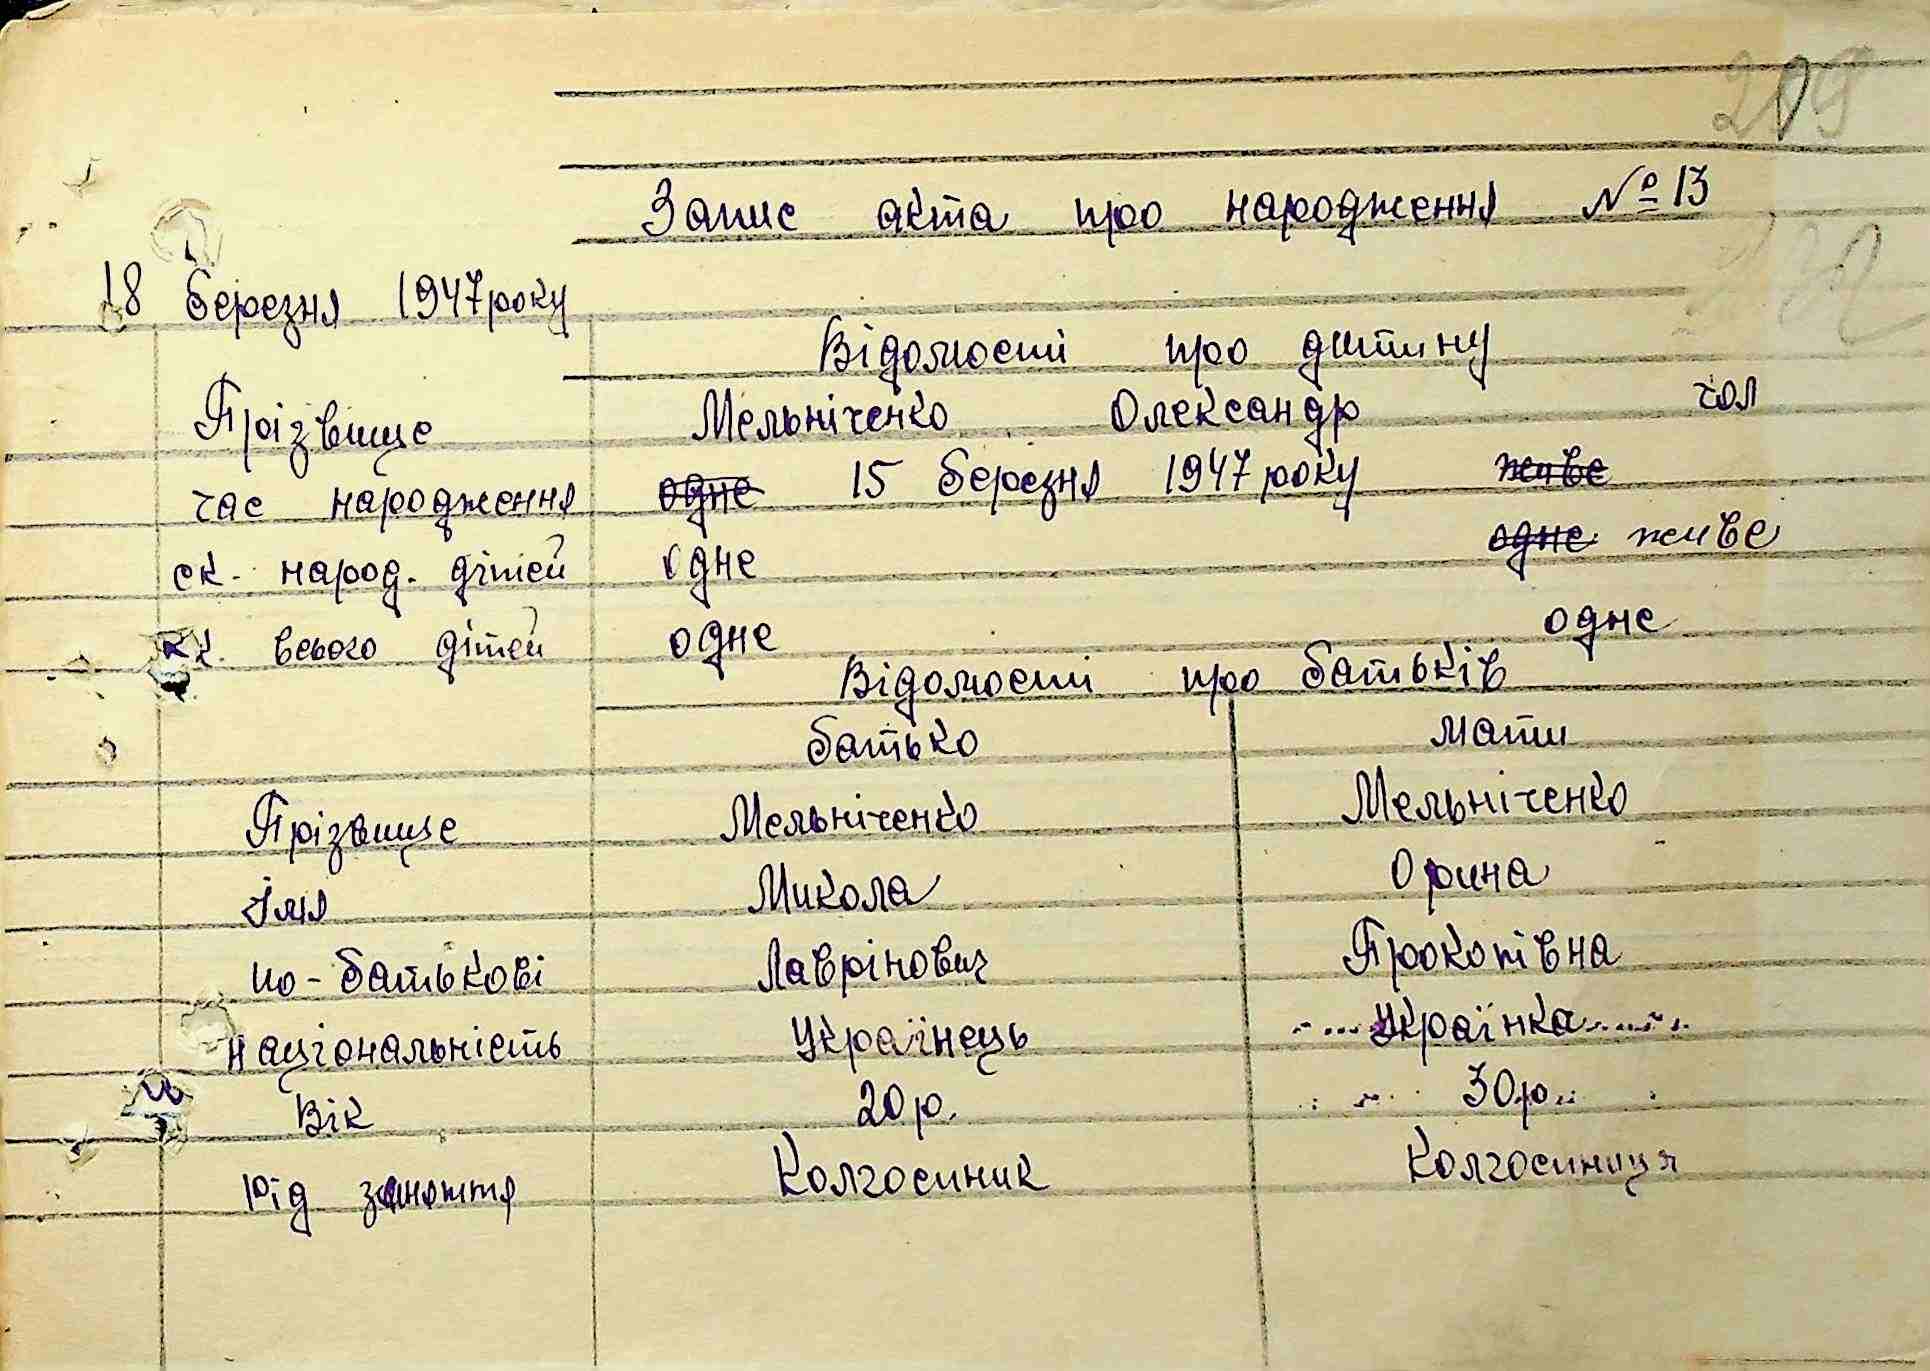 209
Запис акта про народження № 13
132
18 березня 1947 року
Відомості про дитину
Прізвище Мельніченко Олександр чол
час народження одне 15 березня 1947 року живе
ск. народ. дітей одне одне живе
ск. всього дітей одне одне
Відомості про батьків
батько мати
Прізвище Мельніченко Мельніченко
Імя Микола Орина
по-батькові Лаврінович Прокопівна
національність Українець Українка
Вік 20 р. 30 р.
Рід заняття Колгоспник Колгоспниця